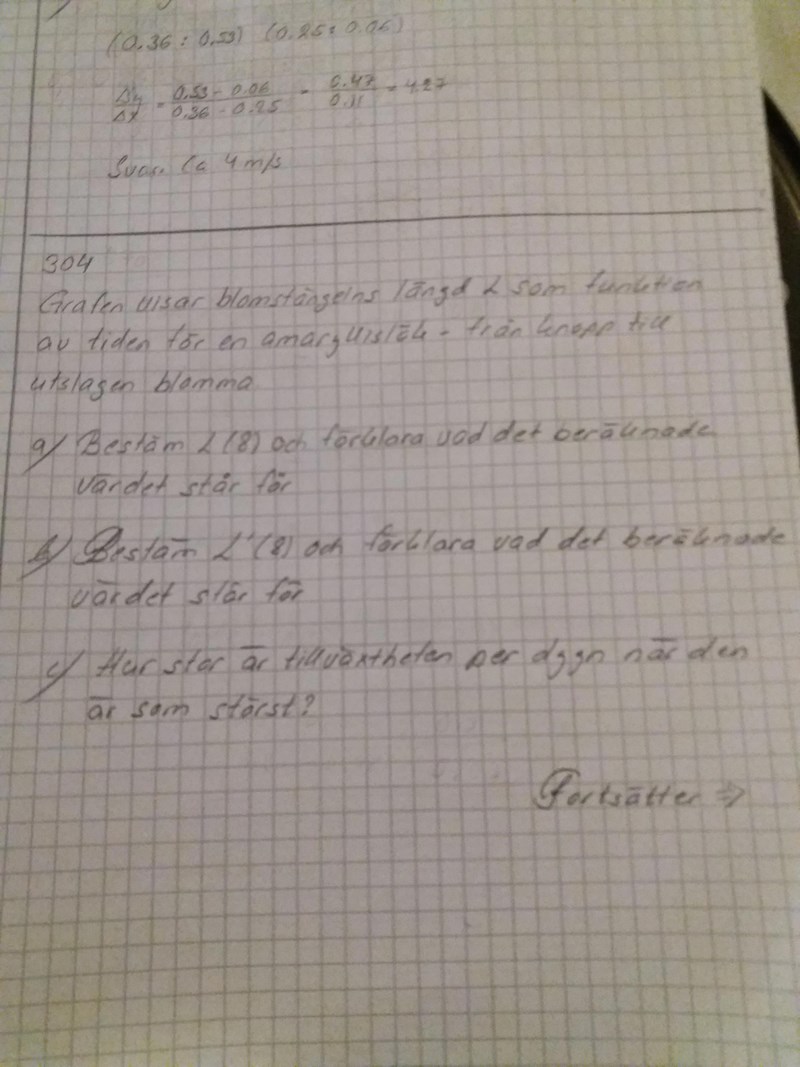 (0.36 : 0,53) (0.25 : 0.06)
Δy/Δx = 0,53 - 0.06 / 0,36 - 0.25 = 0.47 / 0.11 = 4,27
Svar. Ca 4 m/s
304
Grafen visar blomstängelns längd L som funktion
av tiden för en amaryllislök - från knopp till
utslagen blomma
a) Bestäm L(8) och förklara vad det beräknade
värdet står för
b) Bestäm L'(8) och förklara vad det beräknade
värdet står för
c) Hur stor är tillväxtheten per dygn när den
är som störst?
Fortsätter ⇒